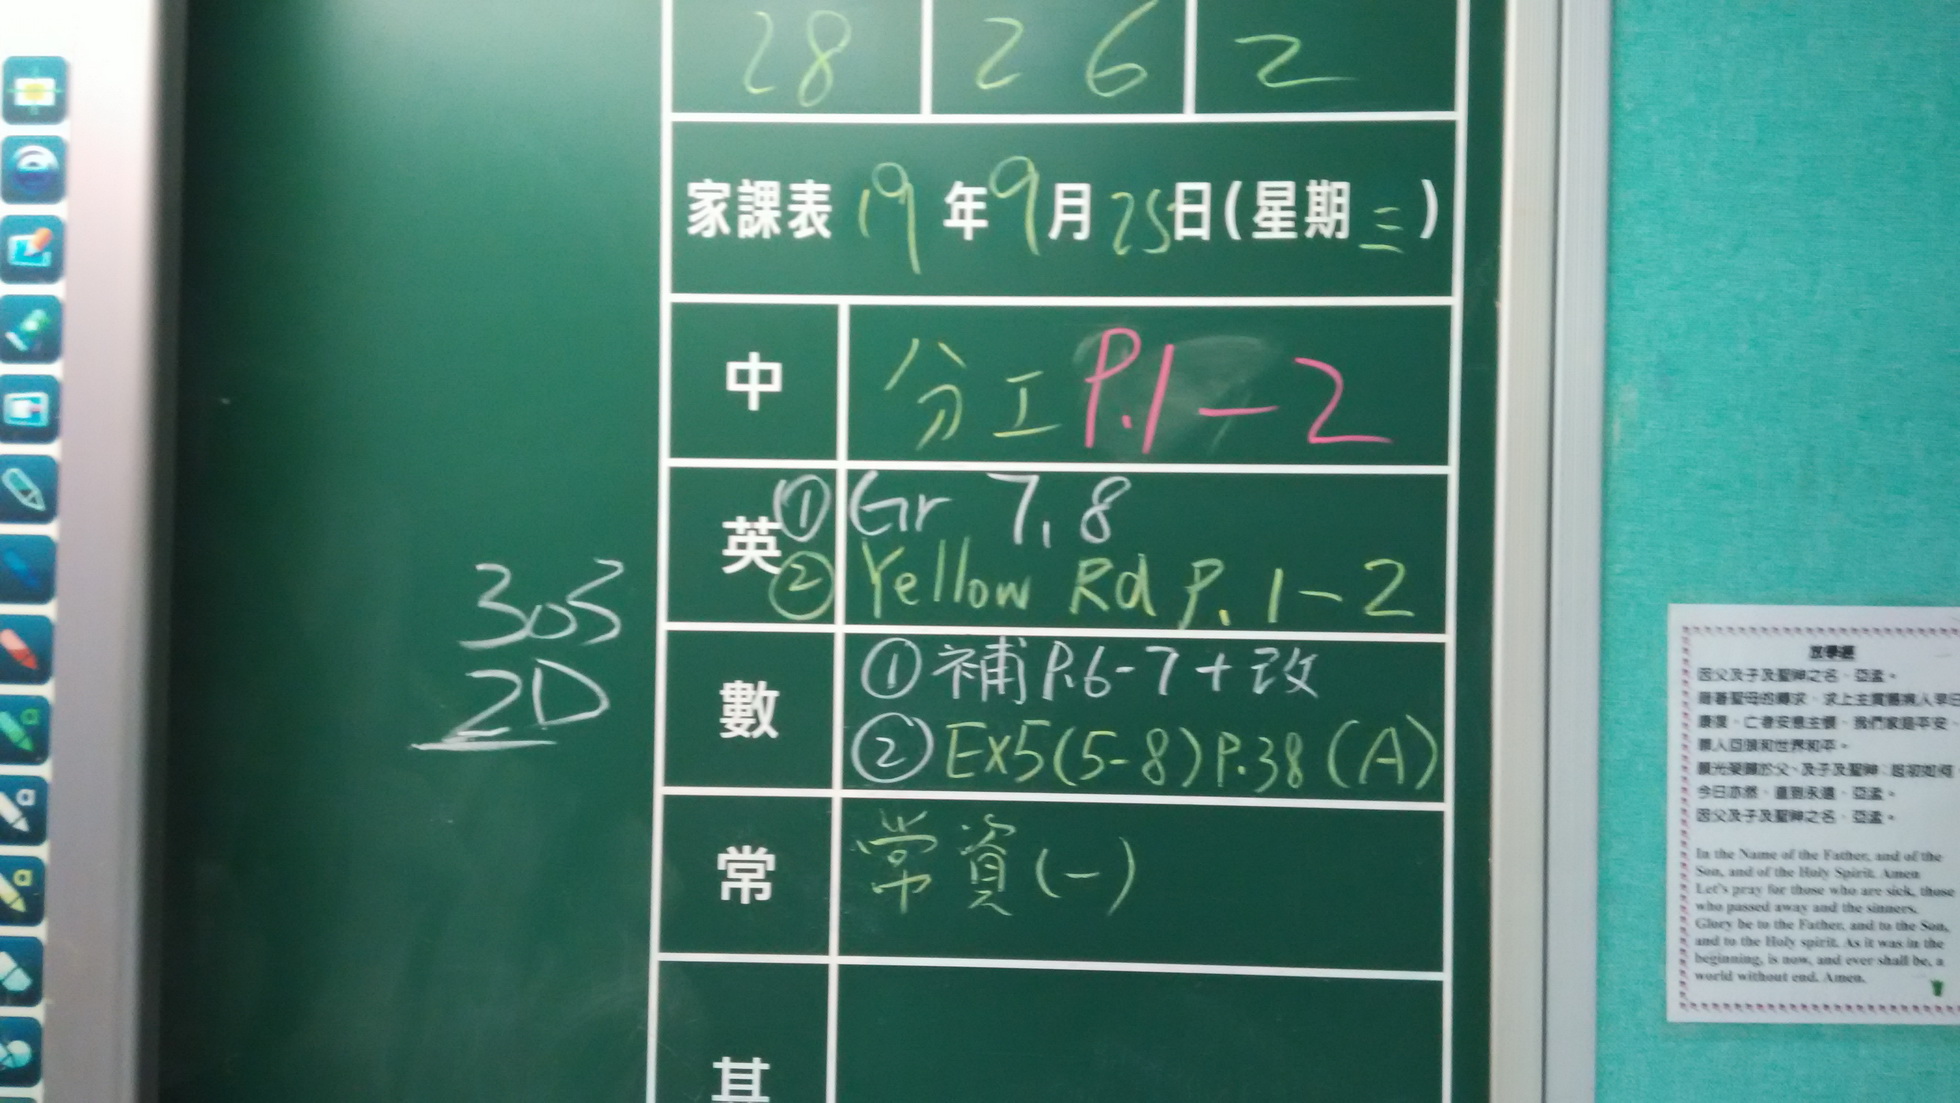 28 26 2
家課表 19年9月25日(星期三)
中 分工 P.1-2
英 ① Gr 7, 8
② Yellow Rd P. 1-2
數 ① 補 P.6-7 + 改
② Ex5(5-8) P.38 (A)
常 常資(一)
其
305
2D
放學經
因父及子及聖神之名，亞孟。
今日亦然，直到永遠，亞孟。
因父及子及聖神之名，亞孟。
In the Name of the Father, and of the
Son, and of the Holy Spirit. Amen
Let's pray for those who are sick, those
who passed away and the sinners.
Glory be to the Father, and to the Son,
and to the Holy spirit. As it was in the
beginning, is now, and ever shall be, a
world without end. Amen.